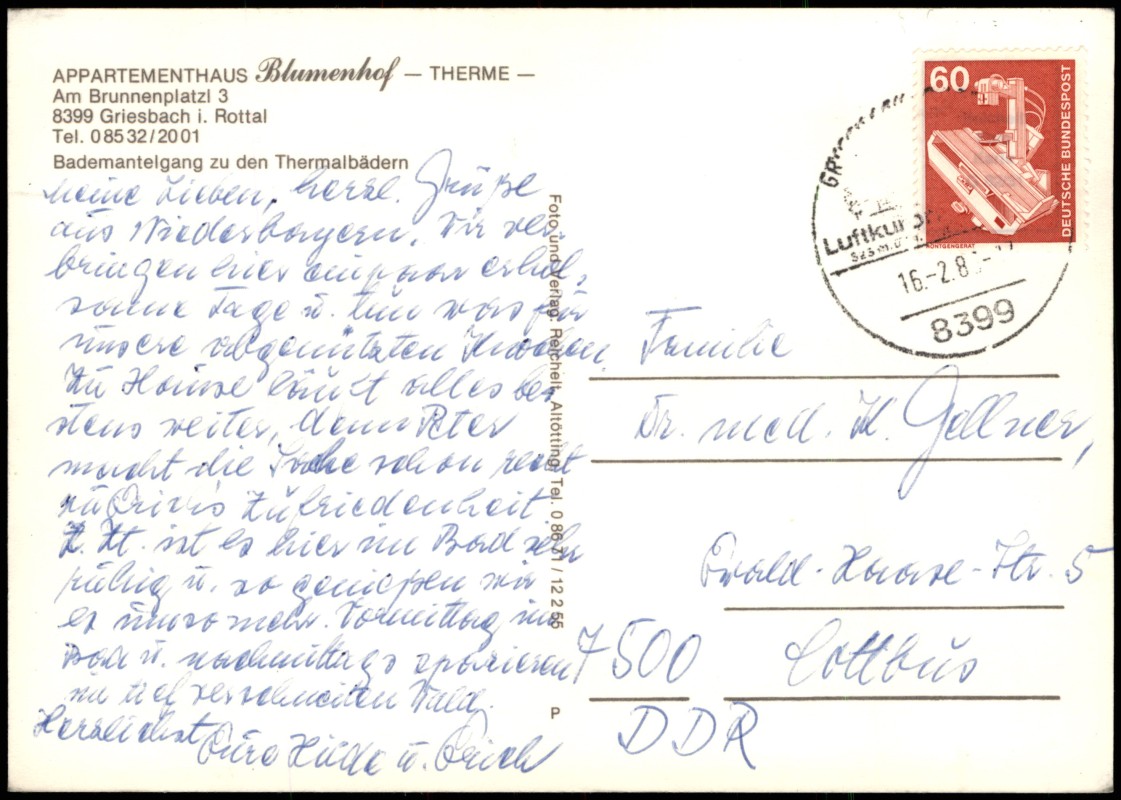 APPARTEMENTHAUS Blumenhof — THERME —
Am Brunnenplatzl 3
8399 Griesbach i. Rottal
Tel. 08532/2001
Bademantelgang zu den Thermalbädern
Meine Lieben, herzl. Grüße
aus Niederbayern. Wir ver-
bringen hier ein paar erhol-
same Tage u. tun was für
unsere abgenützten Knochen.
Zu Hause läuft alles be-
stens weiter, denn Peter
macht die Sache schon recht
zu Zufriedenheit.
Z. Zt. ist es hier im Bad sehr
ruhig u. so genießen wir
es umso mehr. Vormittag im
Bad u. nachmittags spazieren
im tief verschneiten Wald.
Herzlichst
Eure Hilde u. Erich
Foto und Verlag: Reichelt, Altötting, Tel. 08671/12255
P
60
DEUTSCHE BUNDESPOST
RÖNTGENGERÄT
Luftkurort
16.-2.8
8399
Familie
Dr. med. K. Gellner,
Ewald-Haase-Str. 5
7500 Cottbus
DDR